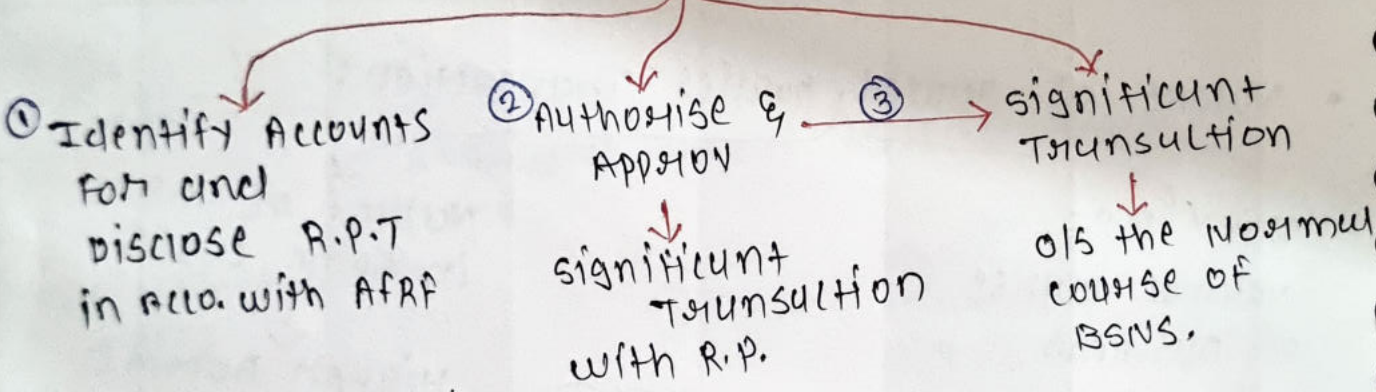 ① Identify Accounts
For and
Disclose R.P.T
in Acco. with AFRF
② Authorise &
Approv
significant
Transaction
with R.P.
③
significant
Transaction
o/s the Normal
course of
BSNS.